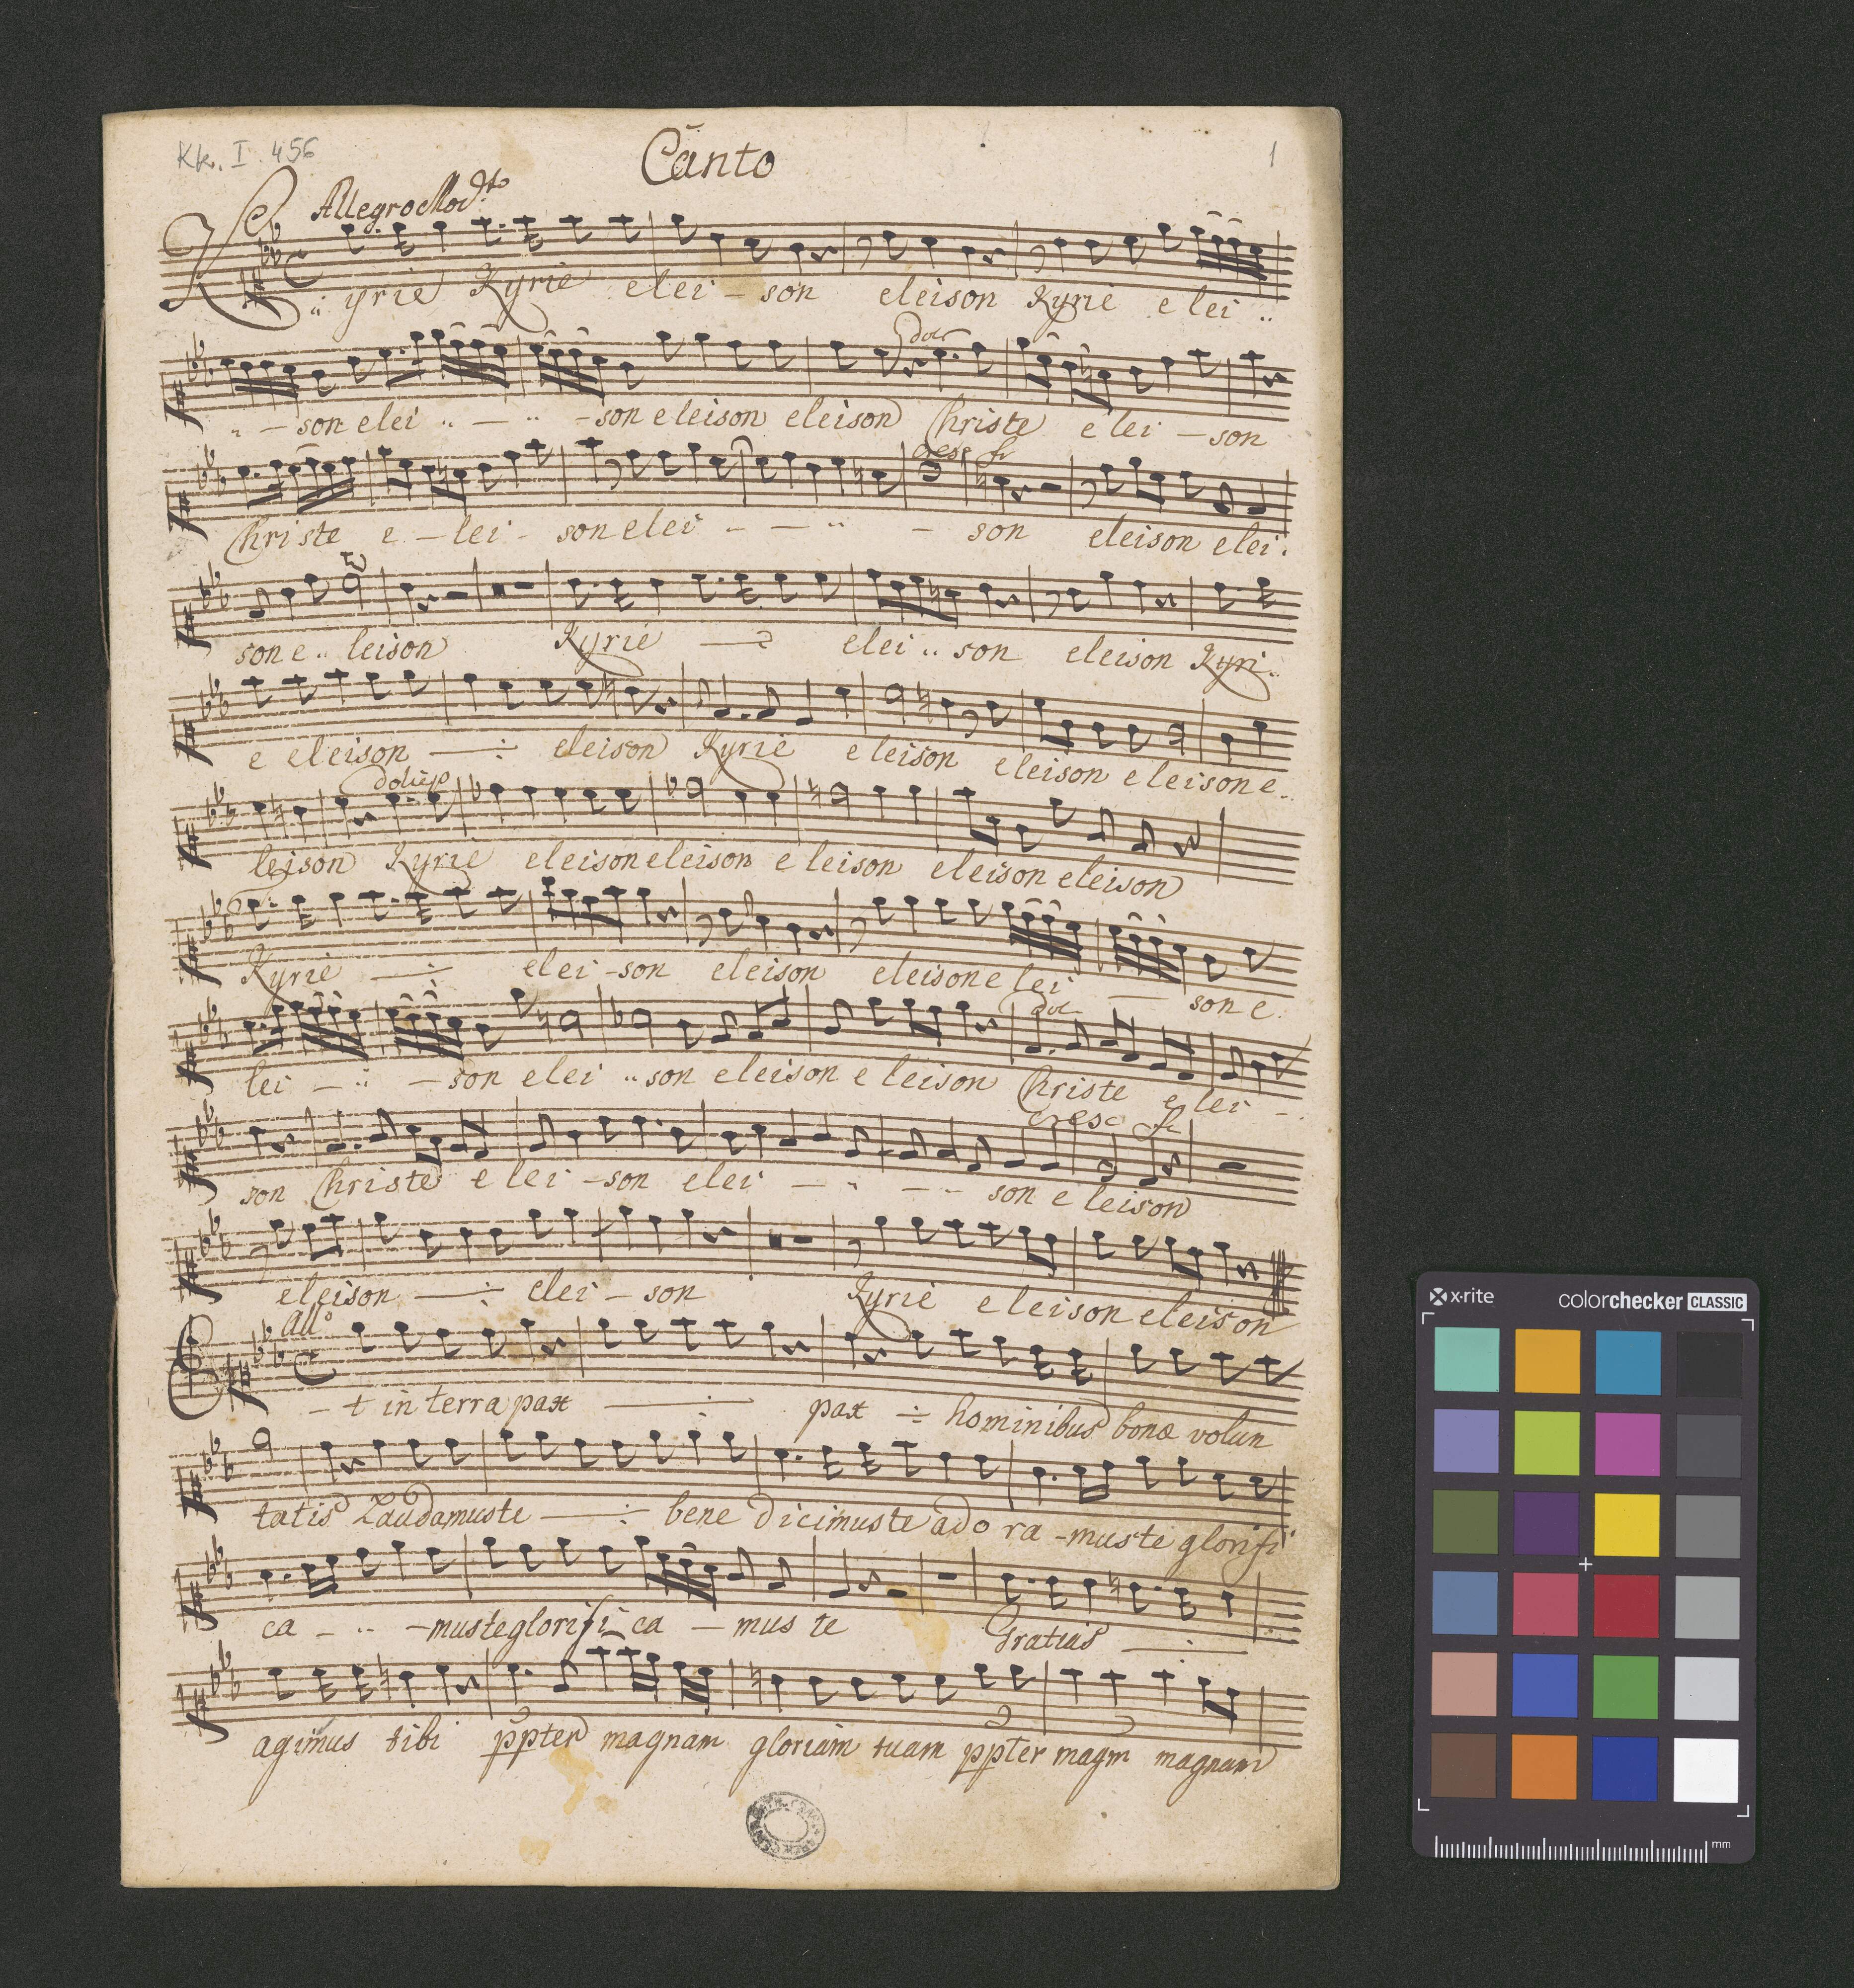 Kk. I. 456
Canto
1
Allegro Modto
Kyrie Kyrie elei - son eleison Kyrie e lei ..
dol
- son elei .. - .. - son eleison eleison Christe e lei - son
cresc f
Christe e - lei - son elei - - .. - son eleison elei.
son e .. leison Kyrie elei .. son eleison Kyri..
e eleison —:— eleison Kyrie e leison eleison eleison e..
leison Kyrie eleison eleison e leison eleison eleison
Kyrie —:— elei - son eleison eleison e lei — son e.
dol
lei - .. - son elei .. son eleison e leison Christe e lei -
cresc f
son Christe e lei - son elei - .. - - son e leison
eleison —:— elei - son Kyrie eleison eleison
allo
Et in terra pax —:— pax -:- hominibus bonæ volun
tatis Laudamuste —:— bene dicimuste ado ra - muste glorifi
ca - .. - musteglorifi ca - mus te Gratias —:—
agimus tibi ppter magnam gloriam tuam ppter magm magnam
x-rite
colorchecker CLASSIC
mm